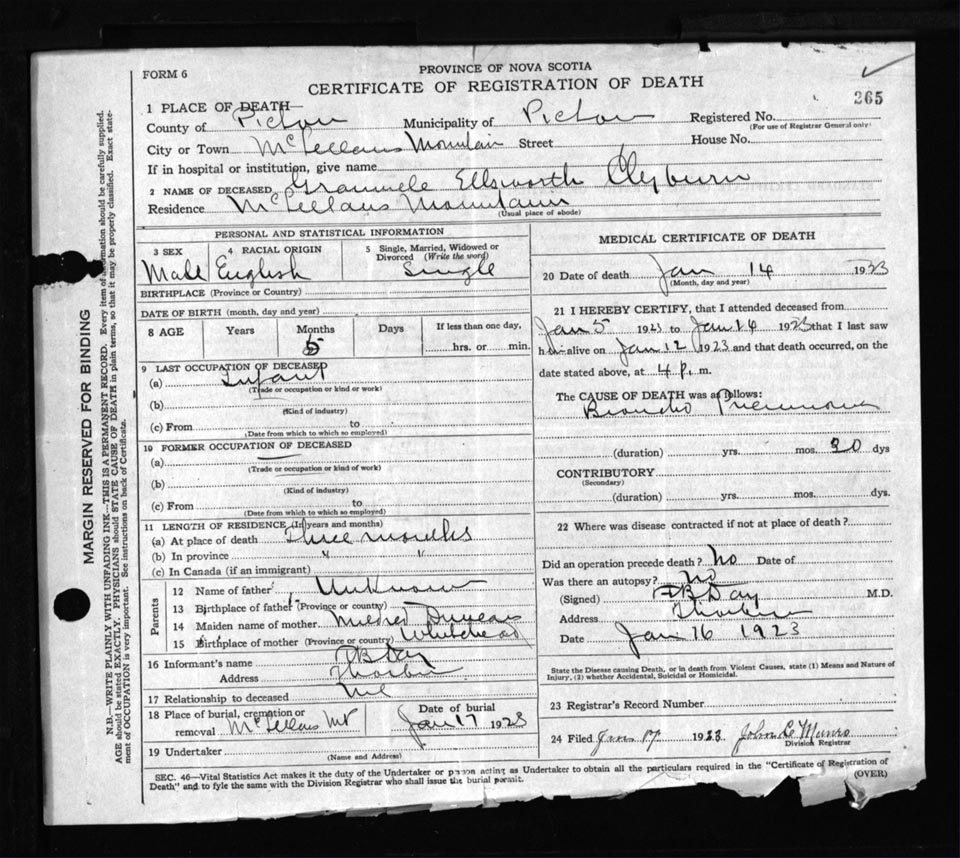 FORM 6
PROVINCE OF NOVA SCOTIA
CERTIFICATE OF REGISTRATION OF DEATH
365
1 PLACE OF DEATH—
County of Pictou Municipality of Pictou Registered No.
(For use of Registrar General only)
City or Town McLellans Mountain Street House No.
If in hospital or institution, give name
2 NAME OF DECEASED Ellsworth Clyburn
Residence McLellans Mountain
(Usual place of abode)
PERSONAL AND STATISTICAL INFORMATION
3 SEX Male
4 RACIAL ORIGIN English
5 Single, Married, Widowed or Divorced (Write the word) Single
BIRTHPLACE (Province or Country)
DATE OF BIRTH (month, day and year)
8 AGE Years Months 5 Days If less than one day, hrs. or min.
9 LAST OCCUPATION OF DECEASED
(a) Infant
(Trade or occupation or kind or work)
(b)
(Kind of industry)
(c) From to
(Date from which to which so employed)
10 FORMER OCCUPATION OF DECEASED
(a)
(Trade or occupation or kind of work)
(b)
(Kind of industry)
(c) From to
(Date from which to which so employed)
11 LENGTH OF RESIDENCE (In years and months)
(a) At place of death three months
(b) In province " "
(c) In Canada (if an immigrant)
Parents
12 Name of father Unknown
13 Birthplace of father (Province or country)
14 Maiden name of mother Mildred
15 Birthplace of mother (Province or country) Whitehead
16 Informant's name DB Day
Address Thorburn
17 Relationship to deceased Nil
18 Place of burial, cremation or removal McLellans Mt
Date of burial Jan 17 1923
19 Undertaker
(Name and Address)
MEDICAL CERTIFICATE OF DEATH
20 Date of death Jan 14 1923
(Month, day and year)
21 I HEREBY CERTIFY, that I attended deceased from
Jan 5 1923 to Jan 14 1923 that I last saw
him alive on Jan 12 1923 and that death occurred, on the
date stated above, at 4 p. m.
The CAUSE OF DEATH was as follows:
Broncho Pneumonia
(duration) yrs. mos. dys
CONTRIBUTORY
(Secondary)
(duration) yrs. mos. dys.
22 Where was disease contracted if not at place of death?
Did an operation precede death? No Date of
Was there an autopsy? No
(Signed) DB Day M.D.
Address Thorburn
Date Jan 16 1923
State the Disease causing Death, or in death from Violent Causes, state (1) Means and Nature of
Injury, (2) whether Accidental, Suicidal or Homicidal.
23 Registrar's Record Number
24 Filed Jan 17 1923 Munro
Division Registrar
SEC. 46—Vital Statistics Act makes it the duty of the Undertaker or person acting as Undertaker to obtain all the particulars required in the "Certificate of Registration of
Death" and to fyle the same with the Division Registrar who shall issue the burial permit.
(OVER)
MARGIN RESERVED FOR BINDING
N.B.—WRITE PLAINLY WITH UNFADING INK—THIS IS A PERMANENT RECORD. Every item of information should be carefully supplied.
AGE should be stated EXACTLY. PHYSICIANS should STATE CAUSE OF DEATH in plain terms, so that it may be properly classified. Exact state-
ment of OCCUPATION is very important. See instructions on back of Certificate.